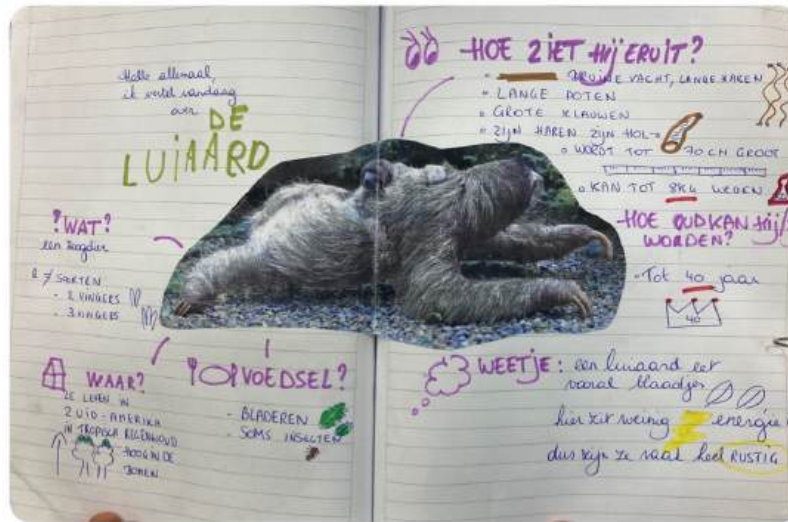 Hallo allemaal,
ik vertel vandaag
over
DE
LUIAARD
?WAT?
een zoogdier
2 ≠ SOORTEN
- 2 VINGERS
- 3 VINGERS
WAAR?
ZE LEVEN IN
ZUID-AMERIKA
IN TROPISCH REGENWOUD
HOOG IN DE
BOMEN
VOEDSEL?
- BLADEREN
- SOMS INSECTEN
HOE ZIET HIJ ERUIT?
BRUINE VACHT, LANGE HAREN
LANGE POTEN
GROTE KLAUWEN
ZIJN HAREN ZIJN HOL
WORDT TOT 70CM GROOT
KAN TOT 8KG WEGEN
HOE OUD KAN HIJ
WORDEN?
Tot 40 jaar
40
WEETJE: een luiaard eet
vooral blaadjes
hier zit weinig energie
dus zijn ze vaak heel RUSTIG